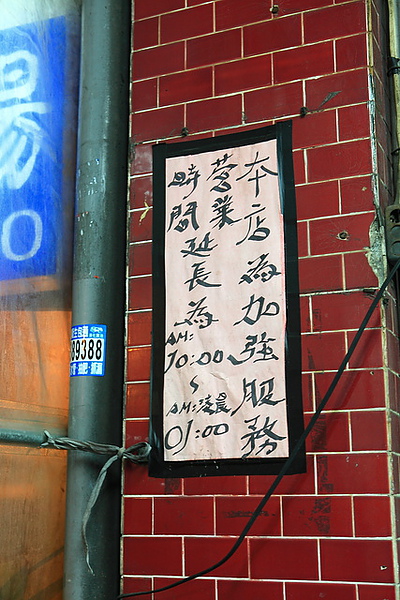 本店為加強服務
營業
時間延長為
AM:
10:00
~
AM:凌晨
01:00
湯
0
89388